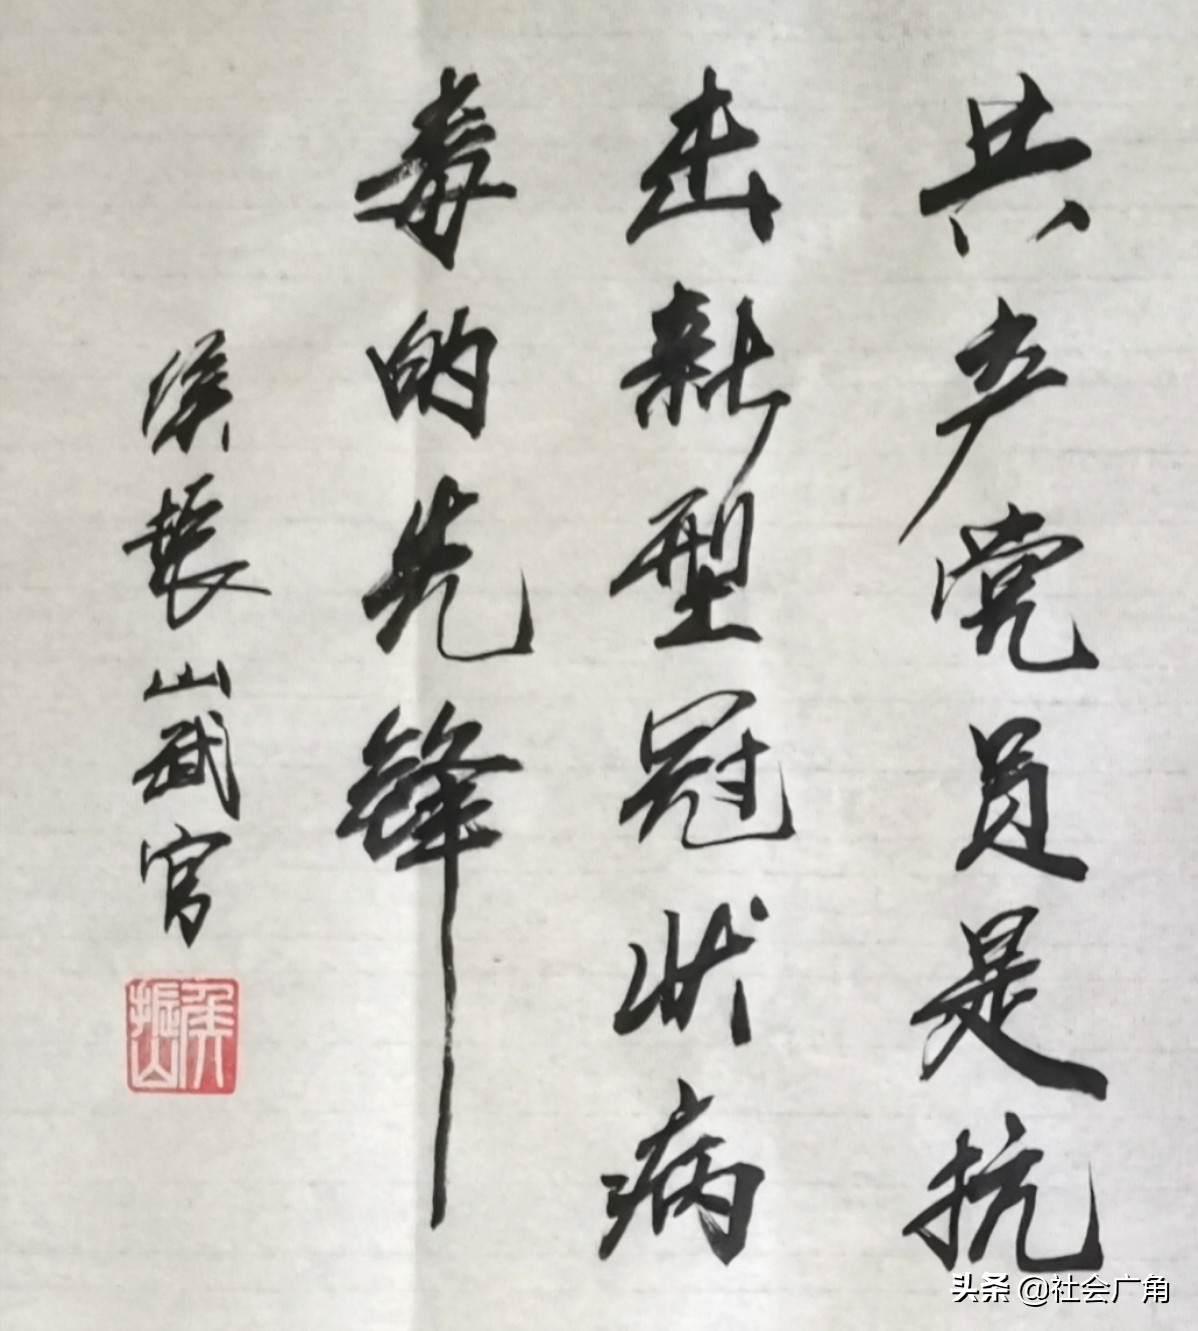 共产党员是抗
击新型冠状病
毒的先锋
侯振山武官
侯振山
头条 @社会广角